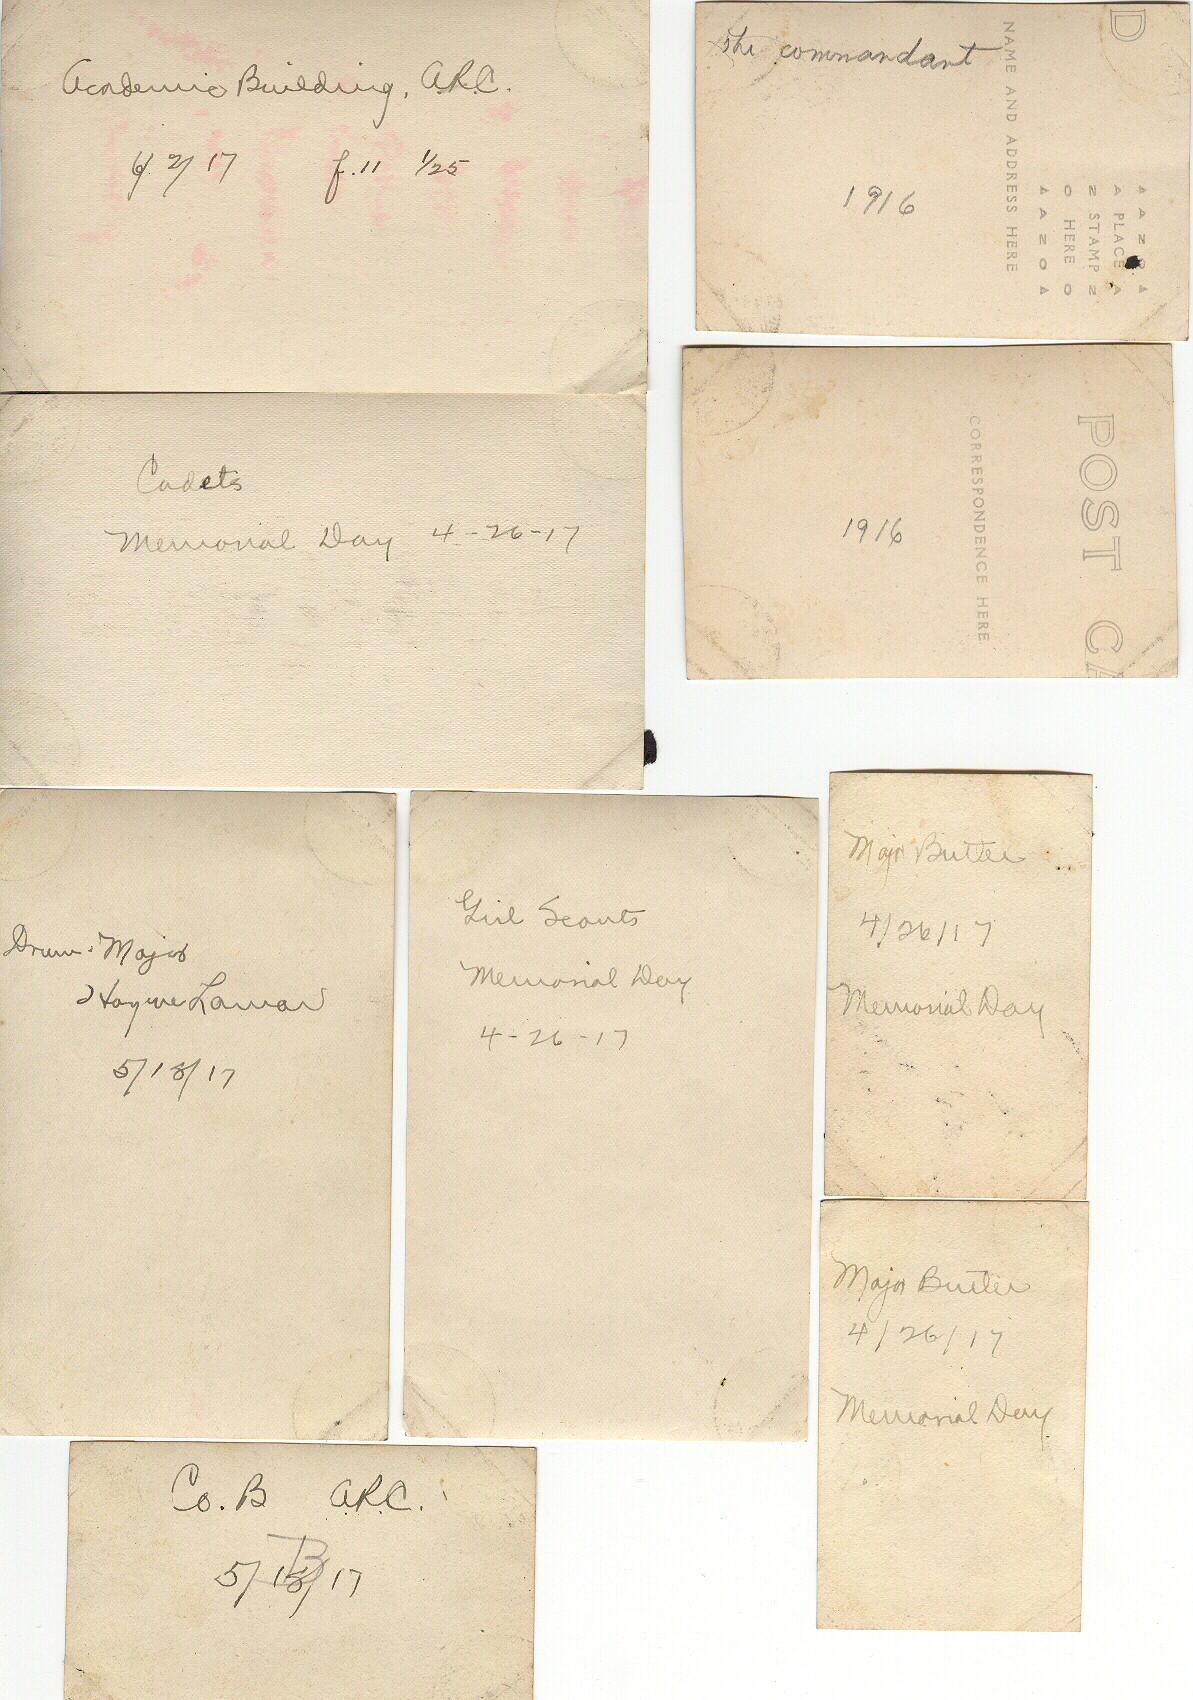 Academic Building, A.R.C.
6/2/17 f.11 1/25
Cadets
Memorial Day 4-26-17
The commandant
1916
D
NAME AND ADDRESS HERE
PLACE
STAMP
HERE
AZO
1916
CORRESPONDENCE HERE
POST CA
Drum-Major
Hayne Lamar
5/18/17
Girl Scouts
Memorial Day
4-26-17
Major Butler
4/26/17
Memorial Day
Major Butler
4/26/17
Memorial Day
Co. B A.R.C.
B
5/18/17